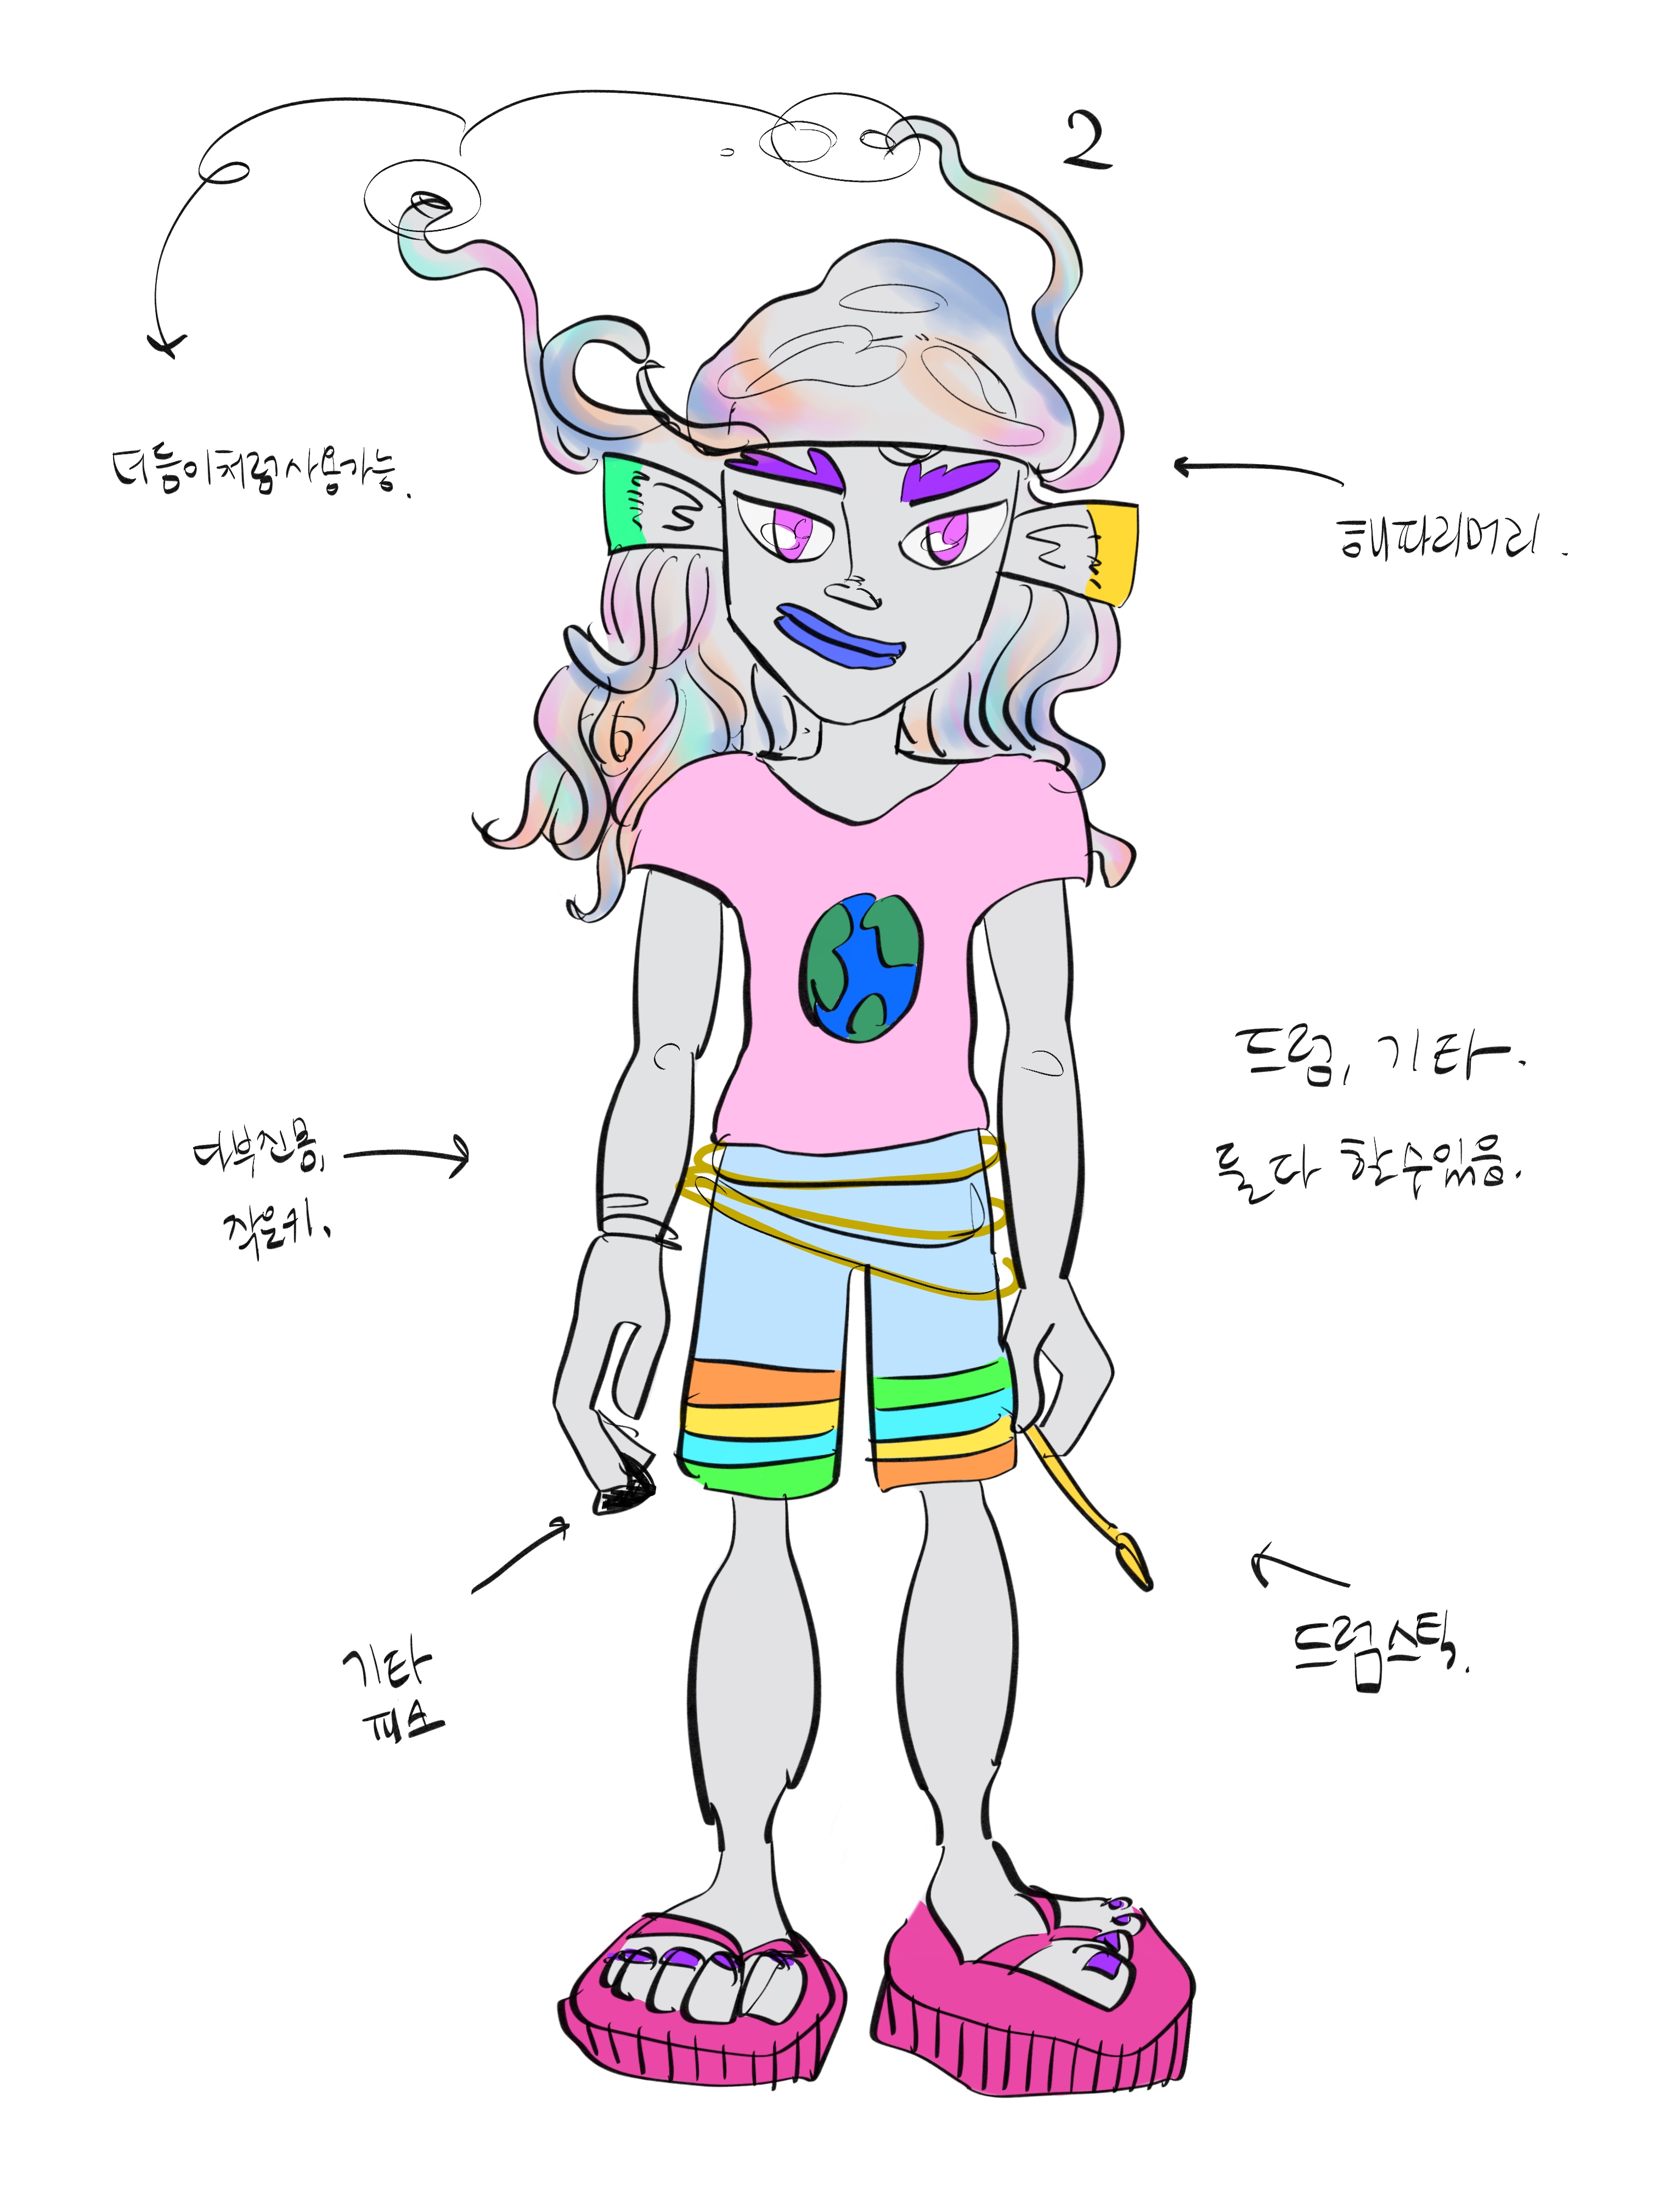 2
더듬이처럼사용가능.
해파리머리.
드럼, 기타.
둘 다 할수있음.
다부진몸,
작은키.
기타
피크
드럼스틱.